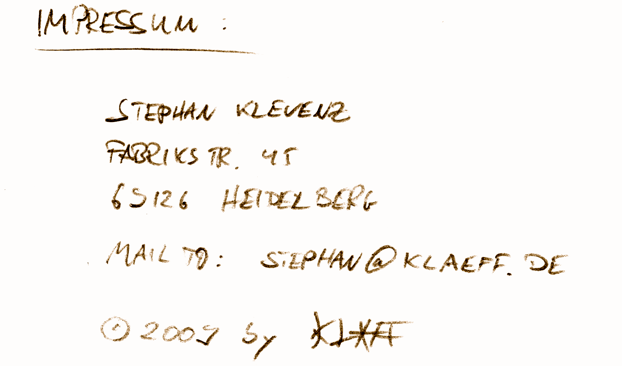 IMPRESSUM:
STEPHAN KLEVENZ
FABRIKSTR. 45
69126 HEIDELBERG
MAIL TO: STEPHAN@KLAEFF.DE
© 2009 by